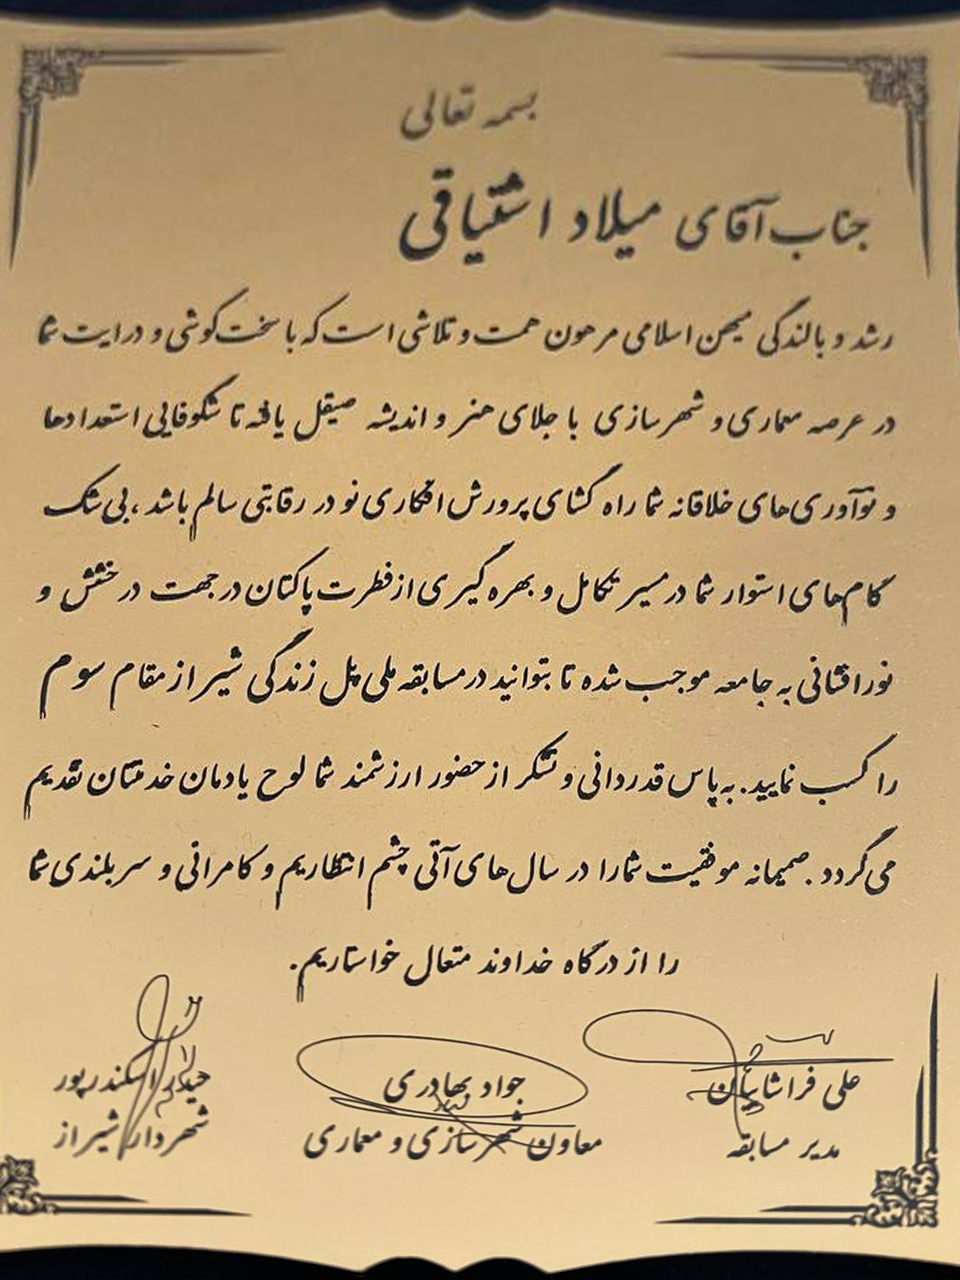 بسمه تعالی
جناب آقای میلاد اشتیاقی
رشد و بالندگی میهن اسلامی مرهون همت و تلاشی است که با سخت‌کوشی و درایت شما
در عرصه معماری و شهرسازی با جلای هنر و اندیشه صیقل یافته تا شکوفایی استعدادها
و نوآوری‌های خلاقانه شما راه گشای پرورش افکاری نو در رقابتی سالم باشد، بی‌شک
گام‌های استوار شما در مسیر تکامل و بهره گیری از فطرت پاکتان در جهت درخشش و
نورافشانی به جامعه موجب شده تا بتوانید در مسابقه ملی پل زندگی شیراز مقام سوم
را کسب نمایید. به پاس قدردانی و تشکر از حضور ارزشمند شما لوح یادمان خدمتتان تقدیم
می‌گردد. صمیمانه موفقیت شما را در سال‌های آتی چشم انتظاریم و کامرانی و سربلندی شما
را از درگاه خداوند متعال خواستاریم.
علی فراشاییان جواد بهادری حیدر اسکندرپور
مدیر مسابقه معاون شهرسازی و معماری شهردار شیراز